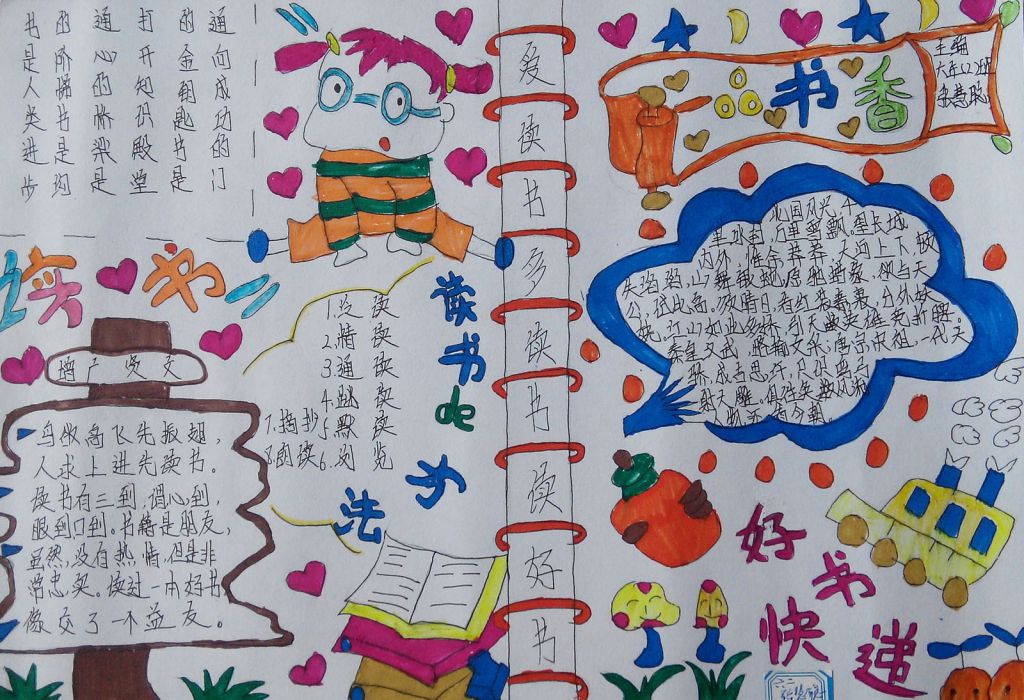 书是人类进步的阶梯书是沟
通心的桥梁是打开知识殿堂
的金钥匙书是通向成功的门
读书
增广贤文
鸟欲高飞先振翅，
人求上进先读书。
读书有三到，谓心到，
眼到口到。书籍是朋友，
虽然，没有热情，但是非
常忠实。读过一本好书
像交了一个益友。
读书de
方法
1.泛读
2.精读
3.通读
4.跳读
5.默读
6.浏览
7.摘抄
8.朗读
爱读书多读书读好书
品书香
主编
六年(2)班
北国风光，千
里冰封，万里雪飘。望长城
内外，惟余莽莽，大河上下，顿
失滔滔，山舞银蛇，原驰蜡象，欲与天
公，试比高。须晴日，看红装素裹，分外妖
娆。江山如此多娇，引无数英雄竞折腰。
秦皇汉武，略输文采，唐宗宋祖，一代天
骄，成吉思汗，只识弯弓
射大雕。俱往矣，数风流
人物，还看今朝
好书
快递